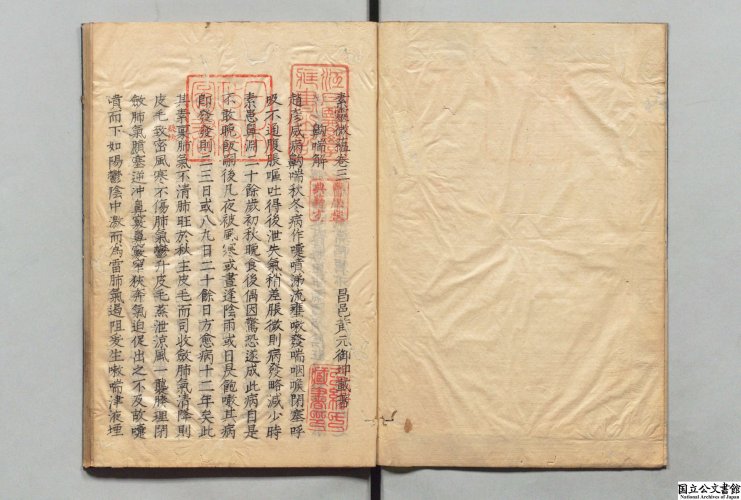 素靈微蘊卷三
昌邑黃元御坤載著
齁喘解
趙彥威病齁喘秋冬病作嚏噴涕流壅嗽發喘咽喉閉塞呼
吸不通腹脹嘔吐得後泄失氣稍差脹微則病發略減少時
素患鼻淵二十餘歲初秋晚食後偶因驚恐遂成此病自是
不敢晚飯嗣後凡夜被風寒或晝逢陰雨或日昃飽啖其病
即發發則二三日或八九日二十餘日方愈病十二年矣此
其素稟肺氣不清肺旺於秋主皮毛而司收斂肺氣清降則
皮毛致密風寒不傷肺氣鬱升皮毛蒸泄涼風一襲腠理閉
斂肺氣膹塞逆沖鼻竅鼻竅窄狹奔氣迫促出之不及故嚏
噴而下如陽鬱陰中激而為雷肺氣遏阻爰生嗽喘津液堙
国立公文書館
National Archives of Japan